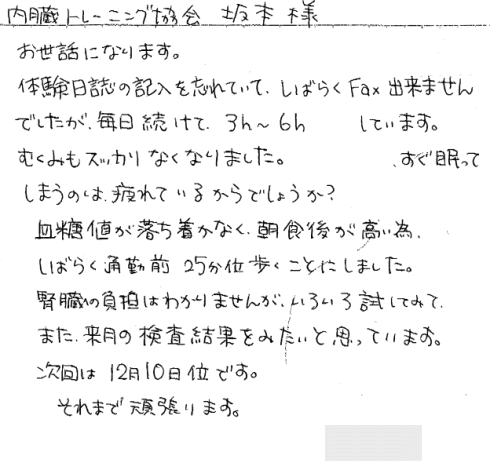 内臓トレーニング協会 坂本様
お世話になります。
体験日誌の記入を忘れていて、しばらくFax出来ません
でしたが、毎日続けて、3h~6h しています。
むくみもスッカリなくなりました。 、すぐ眠って
しまうのは、疲れているからでしょうか?
血糖値が落ち着かなく、朝食後が高い為、
しばらく通勤前25分位歩くことにしました。
腎臓の負担はわかりませんが、いろいろ試してみて、
また、来月の検査結果をみたいと思っています。
次回は12月10日位です。
それまで頑張ります。